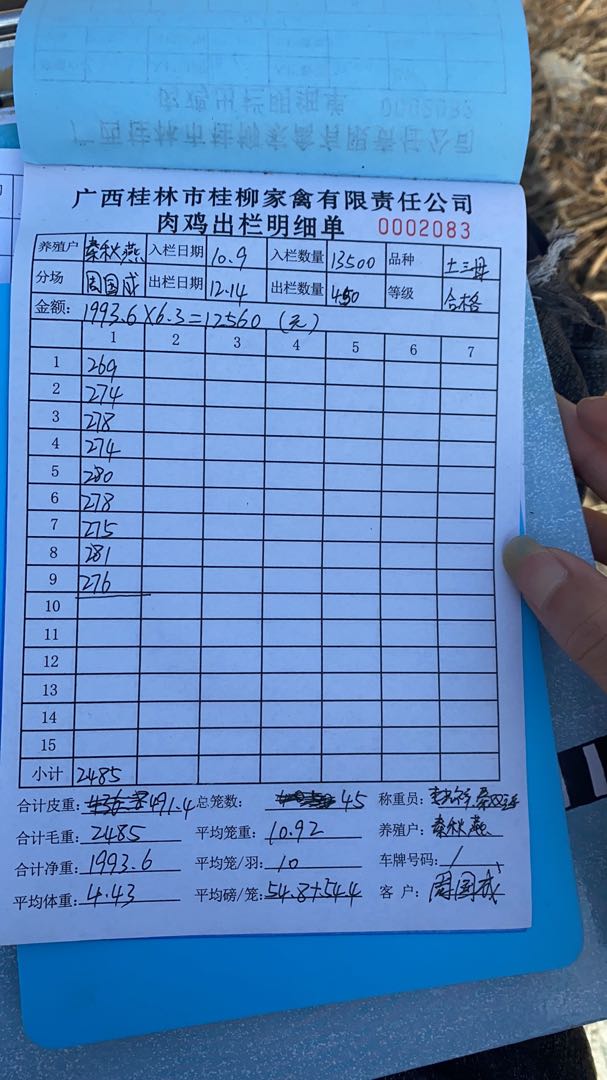 肉鸡出栏明细单 0002082
广西桂林市桂柳家禽有限责任公司
广西桂林市桂柳家禽有限责任公司
肉鸡出栏明细单 0002083
养殖户 秦秋燕 入栏日期 10.9 入栏数量 13500 品种 土三母
分场 周国成 出栏日期 12.14 出栏数量 450 等级 合格
金额: 1993.6×6.3=12560 (元)
1 2 3 4 5 6 7
1 269
2 274
3 278
4 274
5 280
6 278
7 275
8 281
9 276
10
11
12
13
14
15
小计 2485
合计皮重: 491.4 总笼数: 45 称重员:
合计毛重: 2485 平均笼重: 10.92 养殖户: 秦秋燕
合计净重: 1993.6 平均笼/羽: 10 车牌号码: /
平均体重: 4.43 平均磅/笼: 54.8+54.4 客户: 周国成